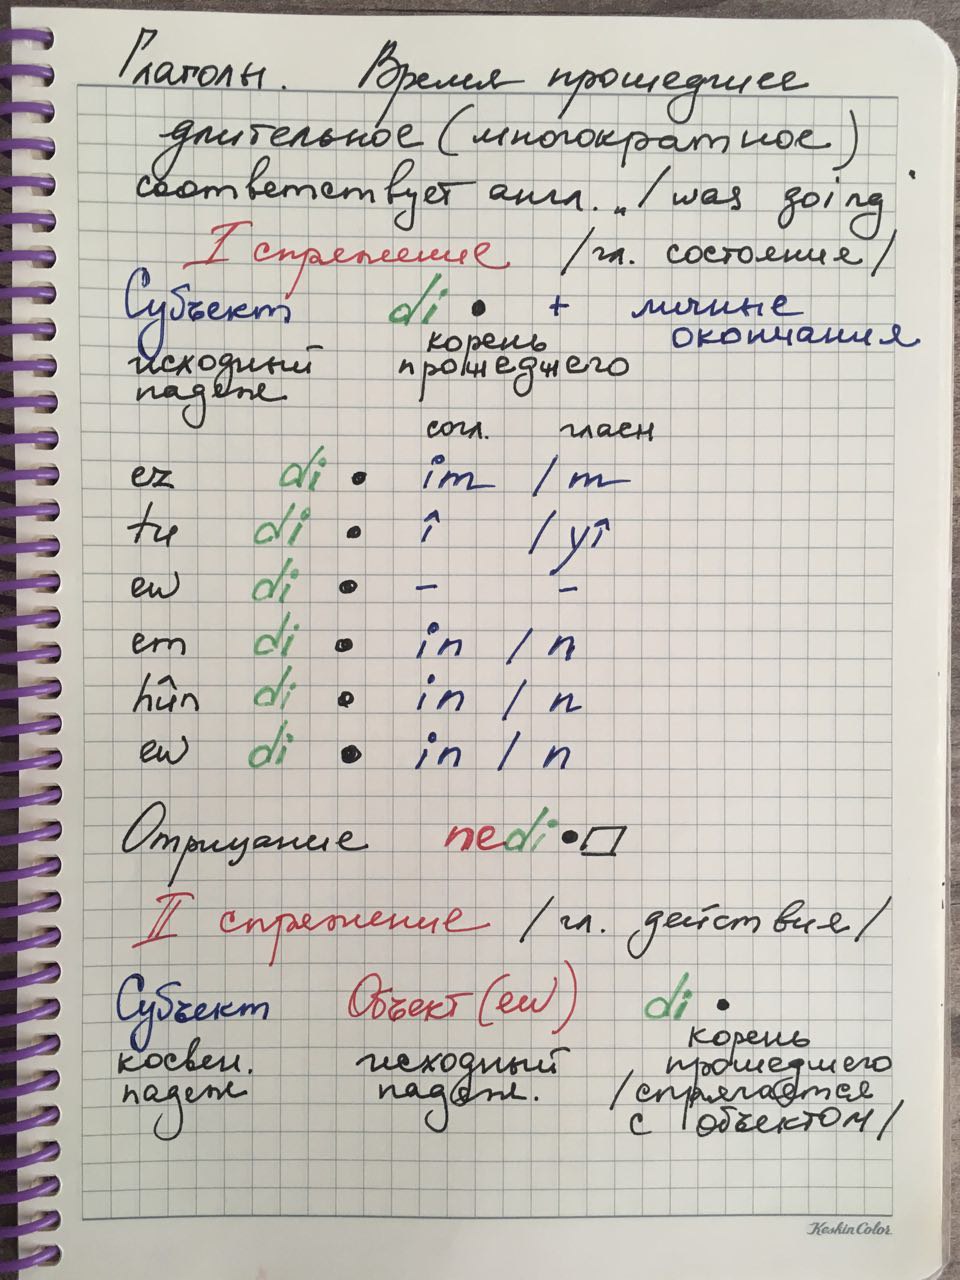 Глаголы. Время прошедшее
длительное (многократное)
соответствует англ. „I was going"
I спряжение /гл. состояния/
Субъект di • + личные
окончания
исходный падеж
корень прошедшего
согл. гласн
ez di • im / m
tu di • î / yî
ew di • – –
em di • in / n
hûn di • in / n
ew di • in / n
Отрицание nedi•▱
II спряжение /гл. действия/
Субъект Объект (ew) di •
косвен. падеж
исходный падеж.
корень прошедшего
/спрягается
с объектом/
KeskinColor